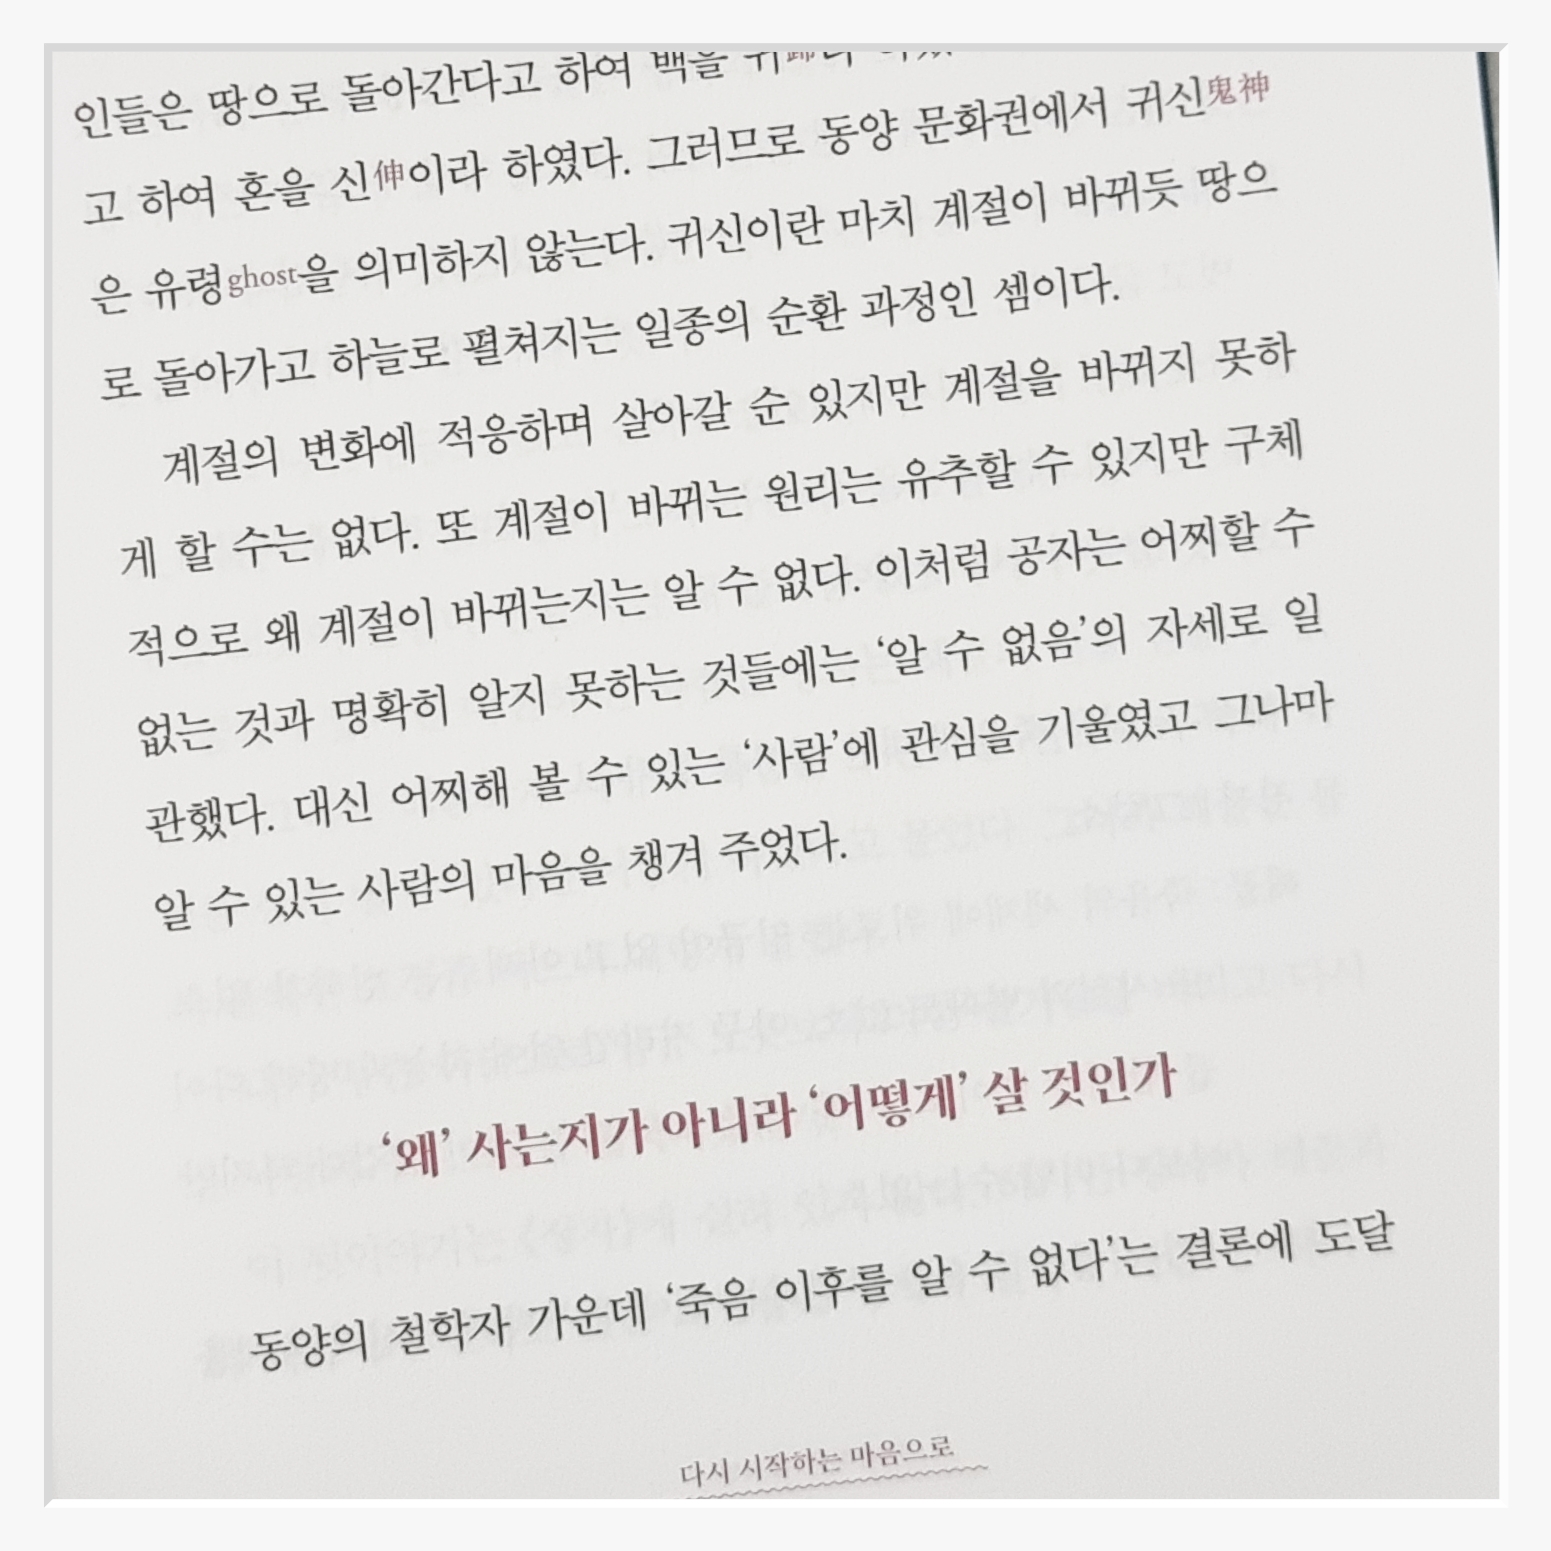 인들은 땅으로 돌아간다고 하여 백을 귀歸라
고 하여 혼을 신伸이라 하였다. 그러므로 동양 문화권에서 귀신鬼神
은 유령ghost을 의미하지 않는다. 귀신이란 마치 계절이 바뀌듯 땅으
로 돌아가고 하늘로 펼쳐지는 일종의 순환 과정인 셈이다.
계절의 변화에 적응하며 살아갈 순 있지만 계절을 바뀌지 못하
게 할 수는 없다. 또 계절이 바뀌는 원리는 유추할 수 있지만 구체
적으로 왜 계절이 바뀌는지는 알 수 없다. 이처럼 공자는 어찌할 수
없는 것과 명확히 알지 못하는 것들에는 ‘알 수 없음’의 자세로 일
관했다. 대신 어찌해 볼 수 있는 ‘사람’에 관심을 기울였고 그나마
알 수 있는 사람의 마음을 챙겨 주었다.
‘왜’ 사는지가 아니라 ‘어떻게’ 살 것인가
동양의 철학자 가운데 ‘죽음 이후를 알 수 없다’는 결론에 도달
다시 시작하는 마음으로